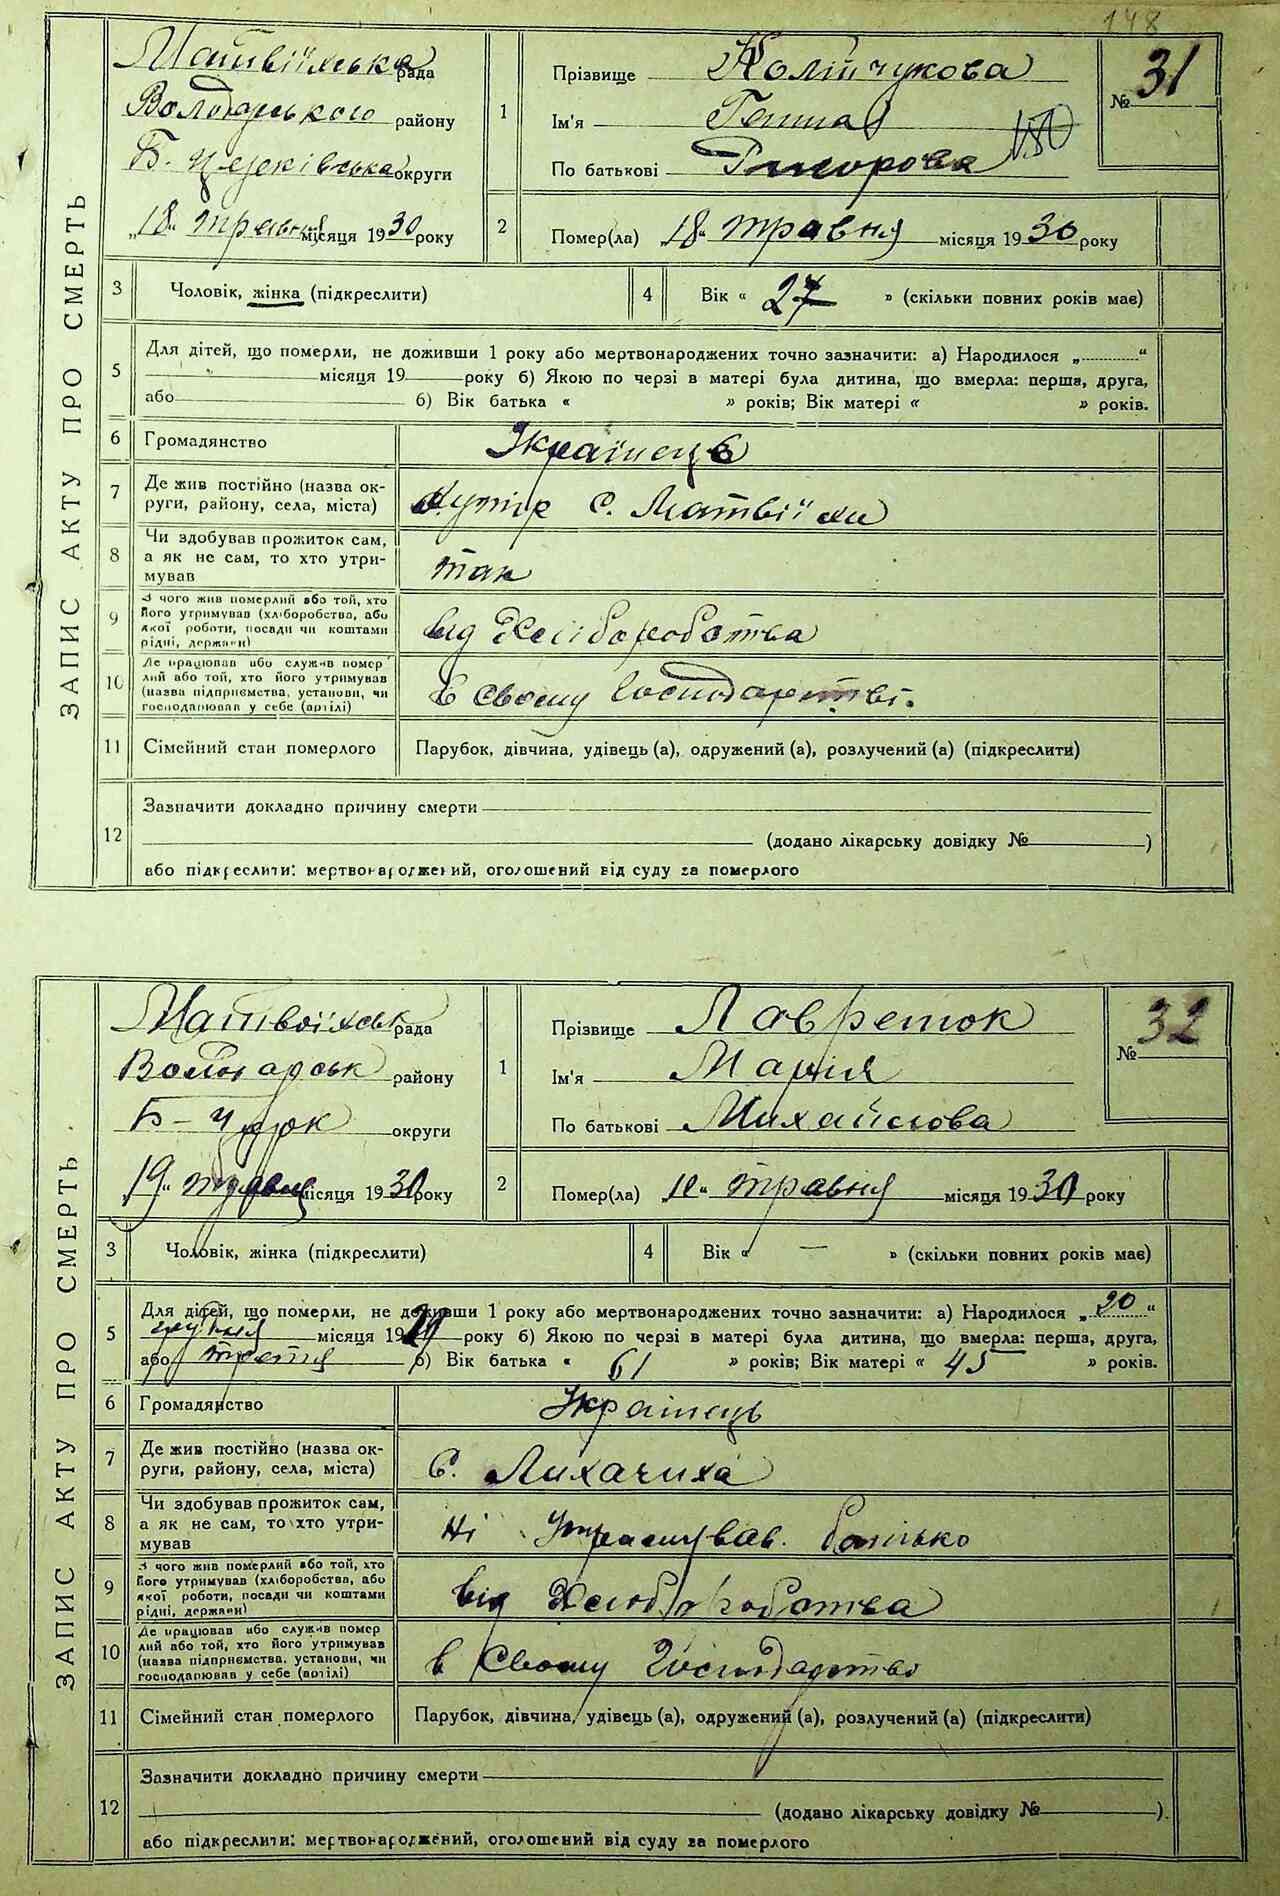 148
ЗАПИС АКТУ ПРО СМЕРТЬ
Матвіїмська рада
Володарського району
Б. Церківська округи
„18" травня місяця 1930 року
1
Прізвище Колійчукова
Ім'я Ганна
По батькові Григорова
180
№ 31
2
Помер(ла) 18" травня місяця 1930 року
3 Чоловік, жінка (підкреслити)
4 Вік « 27 » (скільки повних років має)
5
Для дітей, що померли, не доживши 1 року або мертвонароджених точно зазначити: а) Народилося „ “
місяця 19 року б) Якою по черзі в матері була дитина, що вмерла: перша, друга,
або б) Вік батька « » років; Вік матері « » років.
6 Громадянство Українець
7 Де жив постійно (назва ок-
руги, району, села, міста)
хутір С. Матвіїхи
8
Чи здобував прожиток сам,
а як не сам, то хто утри-
мував
так
9
З чого жив померлий або той, хто
його утримував (хліборобство, або
якої роботи, посади чи коштами
рідні, держави)
від Хліборобства
10
Де працював або служив помер
лий або той, хто його утримував
(назва підприємства, установи, чи
господарював у себе (артілі)
в Своєму Господарстві.
11 Сімейний стан померлого Парубок, дівчина, удівець (а), одружений (а), розлучений (а) (підкреслити)
12
Зазначити докладно причину смерти
(додано лікарську довідку № )
або підкреслити: мертвонароджений, оголошений від суду за померлого
ЗАПИС АКТУ ПРО СМЕРТЬ
Матвоїхськ рада
Володарськ району
Б-Церк округи
„19" травня місяця 1930 року
1
Прізвище Лавреток
Ім'я Марія
По батькові Михайлова
№ 32
2
Помер(ла) травня місяця 1930 року
3 Чоловік, жінка (підкреслити)
4 Вік « — » (скільки повних років має)
5
Для дітей, що померли, не доживши 1 року або мертвонароджених точно зазначити: а) Народилося „20“
грудня місяця 1929 року б) Якою по черзі в матері була дитина, що вмерла: перша, друга,
або третя б) Вік батька « 61 » років; Вік матері « 45 » років.
6 Громадянство Українець
7 Де жив постійно (назва ок-
руги, району, села, міста)
С. Лихачиха
8
Чи здобував прожиток сам,
а як не сам, то хто утри-
мував
Ні Утримував. батько
9
З чого жив померлий або той, хто
його утримував (хліборобства, або
якої роботи, посади чи коштами
рідні, держави)
від Хліборобства
10
Де працював або служив помер
лий або той, хто його утримував
(назва підприємства, установи, чи
господарював у себе (артілі)
в Своєму Господарстві
11 Сімейний стан померлого Парубок, дівчина, удівець (а), одружений (а), розлучений (а) (підкреслити)
12
Зазначити докладно причину смерти
(додано лікарську довідку № ).
або підкреслити: мертвонароджений, оголошений від суду за померлого